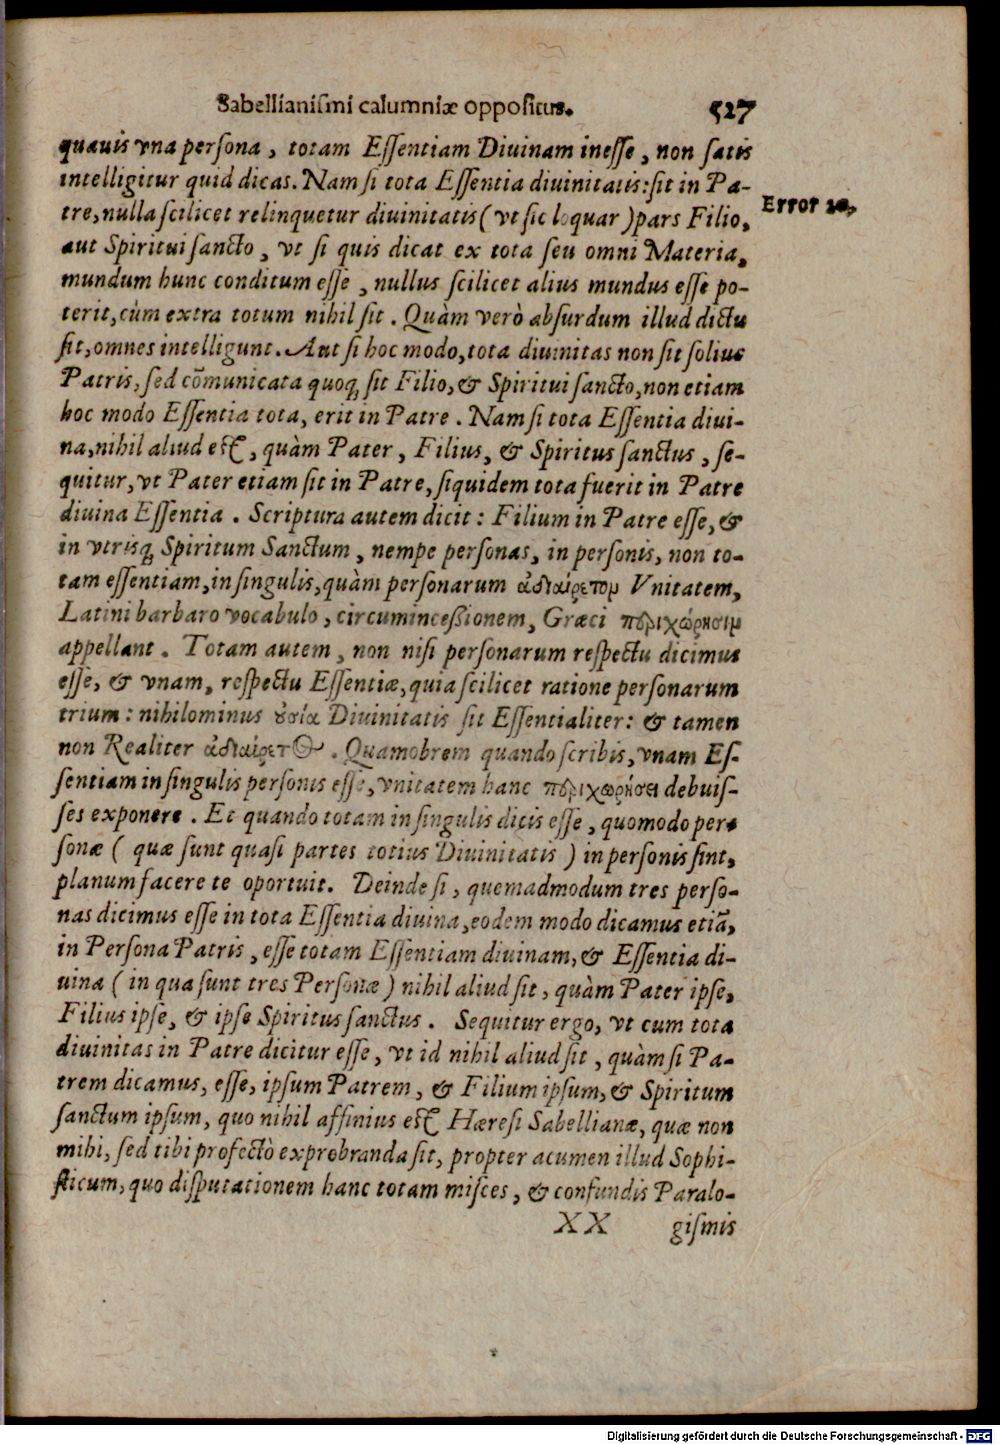 Sabellianiſmi calumniæ oppoſitus. 527
quauis vna perſona, totam Eſſentiam Diuinam ineſſe, non ſatis
intelligitur quid dicas. Nam ſi tota Eſſentia diuinitatis: ſit in Pa-
tre, nulla ſcilicet relinquetur diuinitatis (vt ſic loquar) pars Filio,
Error 10.
aut Spiritui ſancto, vt ſi quis dicat ex tota ſeu omni Materia,
mundum hunc conditum eſſe, nullus ſcilicet alius mundus eſſe po-
terit, cùm extra totum nihil ſit. Quàm verò abſurdum illud dictu
ſit, omnes intelligunt. Aut ſi hoc modo, tota diuinitas non ſit ſolius
Patris, ſed cōmunicata quoq; ſit Filio, & Spiritui ſancto, non etiam
hoc modo Eſſentia tota, erit in Patre. Nam ſi tota Eſſentia diui-
na, nihil aliud eſt, quàm Pater, Filius, & Spiritus ſanctus, ſe-
quitur, vt Pater etiam ſit in Patre, ſiquidem tota fuerit in Patre
diuina Eſſentia. Scriptura autem dicit: Filium in Patre eſſe, &
in vtrisq; Spiritum Sanctum, nempe perſonas, in perſonis, non to-
tam eſſentiam, in ſingulis, quàm perſonarum ἀδιαίρετον Vnitatem,
Latini barbaro vocabulo, circuminceßionem, Græci περιχώρησιν
appellant. Totam autem, non niſi perſonarum reſpectu dicimus
eſſe, & vnam, reſpectu Eſſentiæ, quia ſcilicet ratione perſonarum
trium: nihilominus ȣσία Diuinitatis ſit Eſſentialiter: & tamen
non Realiter ἀδιαίρετος. Quamobrem quando ſcribis, vnam Eſ-
ſentiam in ſingulis perſonis eſſe, vnitatem hanc περιχωρήσει debuiſ-
ſes exponere. Et quando totam in ſingulis dicis eſſe, quomodo per-
ſonæ (quæ ſunt quaſi partes totius Diuinitatis) in perſonis ſint,
planum facere te oportuit. Deinde ſi, quemadmodum tres perſo-
nas dicimus eſſe in tota Eſſentia diuina, eodem modo dicamus etiā,
in Perſona Patris, eſſe totam Eſſentiam diuinam, & Eſſentia di-
uina (in qua ſunt tres Perſonæ) nihil aliud ſit, quàm Pater ipſe,
Filius ipſe, & ipſe Spiritus ſanctus. Sequitur ergo, vt cum tota
diuinitas in Patre dicitur eſſe, vt id nihil aliud ſit, quàm ſi Pa-
trem dicamus, eſſe, ipſum Patrem, & Filium ipſum, & Spiritum
ſanctum ipſum, quo nihil affinius eſt Hæreſi Sabellianæ, quæ non
mihi, ſed tibi profectò exprobranda ſit, propter acumen illud Sophi-
ſticum, quo diſputationem hanc totam miſces, & confundis Paralo-
XX giſmis
Digitalisierung gefördert durch die Deutsche Forschungsgemeinschaft - DFG